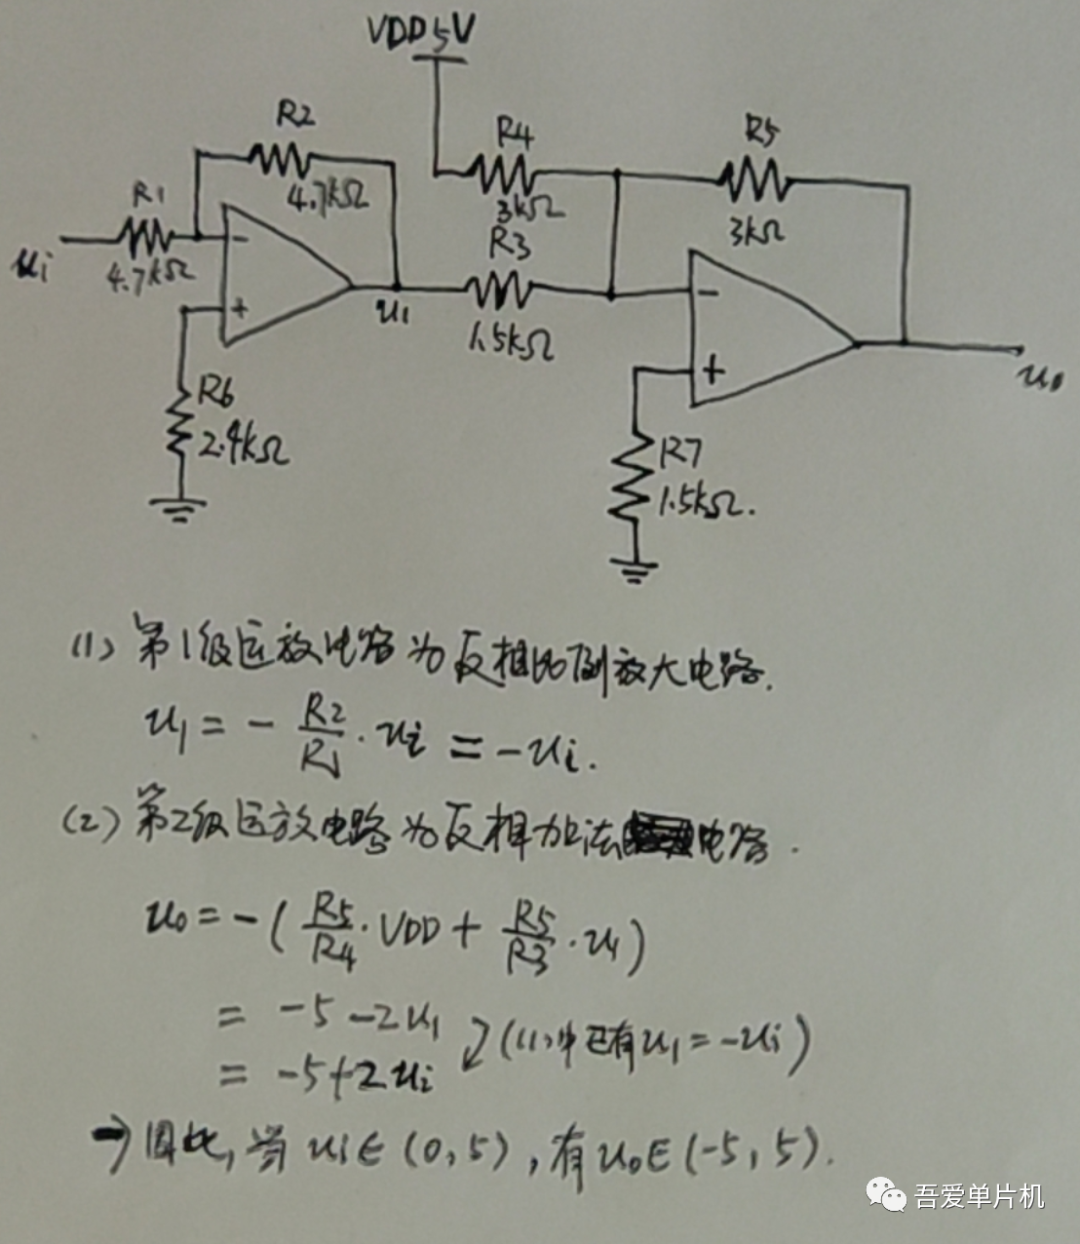 VDD 5V
R2
4.7kΩ
R4
3kΩ
R5
3kΩ
R1
4.7kΩ
ui
−
+
u1
R3
1.5kΩ
−
+
uo
R6
2.4kΩ
R7
1.5kΩ.
(1) 第1级运放电路为反相比例放大电路.
u1 = - R2/R1 · ui = -ui.
(2) 第2级运放电路为反相加法电路.
uo = -( R5/R4 · VDD + R5/R3 · u1)
= -5 -2u1
(（1）中已有u1 = -ui)
= -5+2ui
→ 因此, 当 ui∈(0,5), 有 uo∈(-5,5).
吾爱单片机